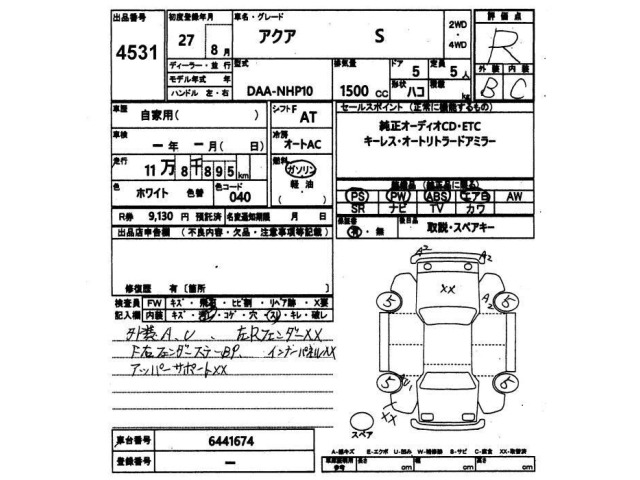 出品番号 初度登録年月 車名・グレード 2WD 評価点
4531 27 8月 アクア S ・4WD R
ディーラー・並行 型式 排気量 ドア 定員 外装 内装
モデル年式 年 5 5人 B C
ハンドル 左・右 DAA-NHP10 1500 cc 形状 ハコ 積載 kg
車歴 自家用( ) シフト F AT セールスポイント (正常に機能するもの)
車検 ー年 ー月 ( 日) 冷房 オートAC 純正オーディオCD・ETC
キーレス・オートリトラードアミラー
走行 11万8千895km 燃料 ガソリン
軽油
色 ホワイト 色替 色コード 040 ( )
装備品 (純正品に限る)
PS PW ABS エアB AW
SR ナビ TV カワ
R券 9,130 円 預託済 名変通知期限 月 日 保証書 有・無 後日品 取説・スペアキー
出品店申告欄 (不良内容・欠品・注意事項等記載)
修復歴 有〔箇所 〕
検査員 FW キズ・飛石・ヒビ割・リペア跡・X要
記入欄 内装 キズ・汚レ・コゲ・穴・スレ・キレ・破レ
外装A、U、左RフェンダーXX
F右フェンダーステーBP、インナーパネルXX
アッパーサポートXX
A2 A2
XX
5 A2 5
5 U1 5
XX
スペア
車台番号 6441674
登録番号 ー
A-線キズ E-エクボ U-凹み W-補修跡 S-サビ C-腐食 XX-取替済
車庫証明用参考 長さ cm 幅 cm 高さ cm